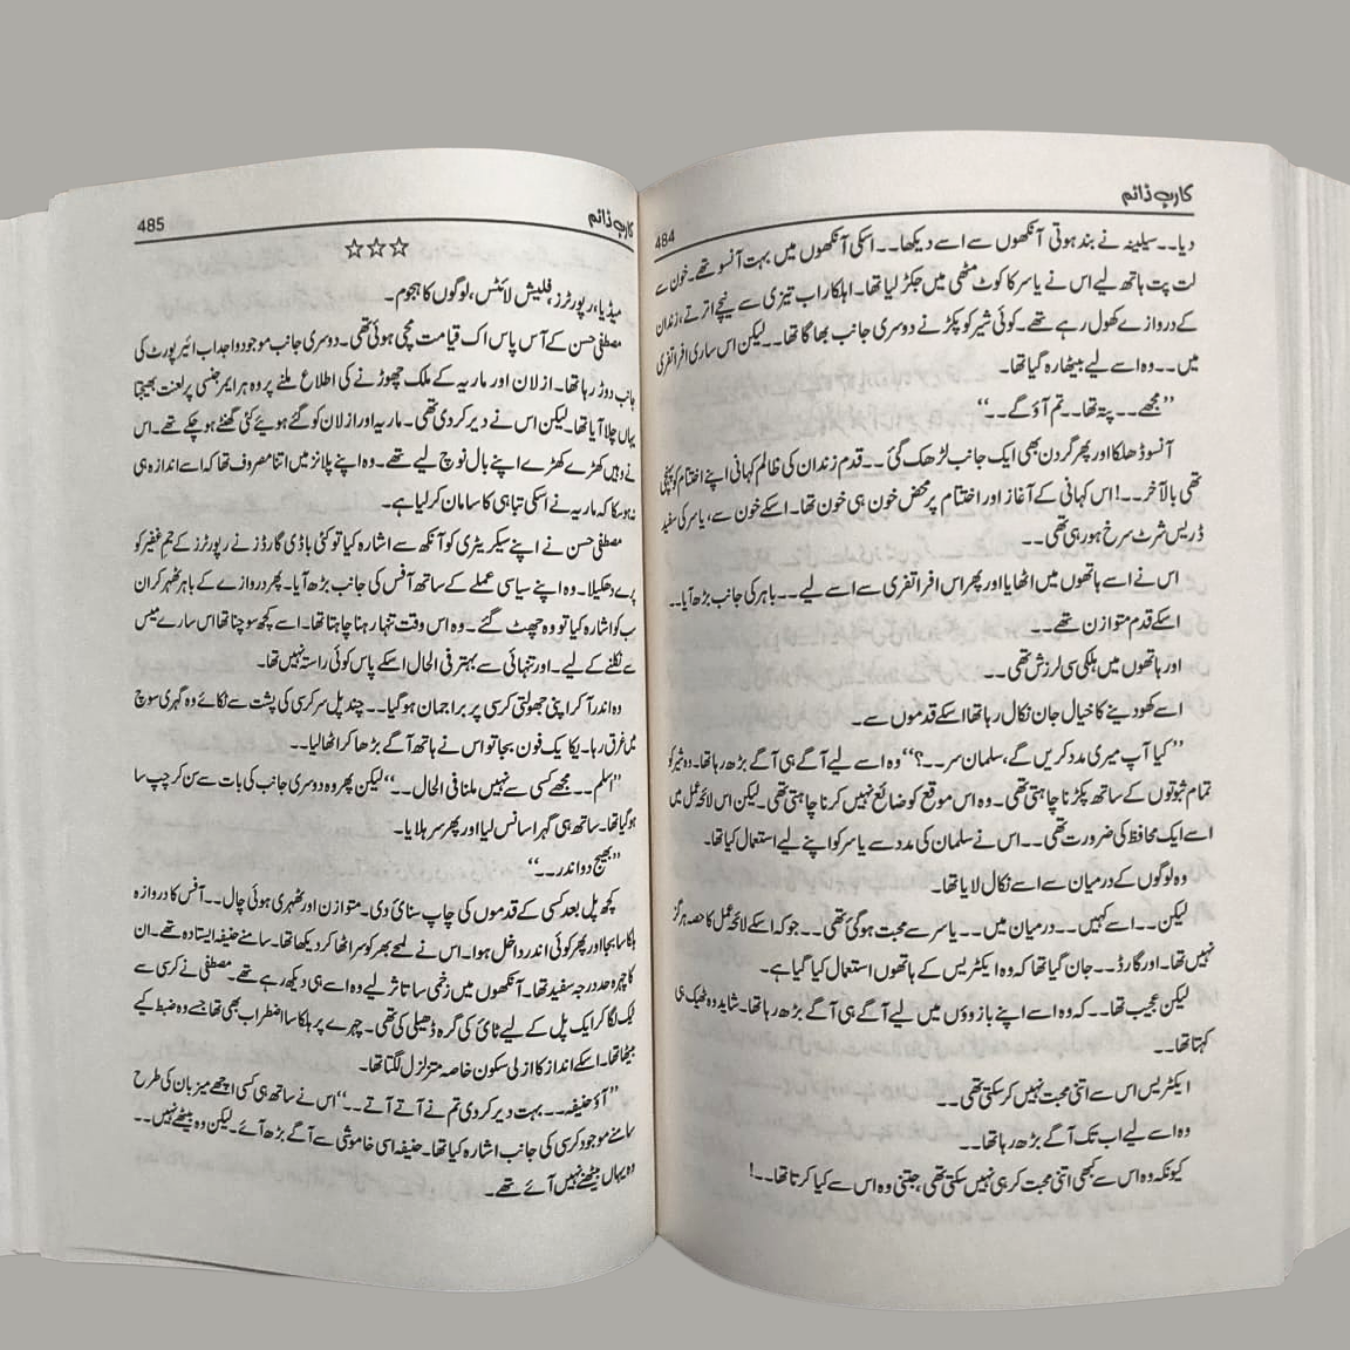 کارب ذائم
484
دیا۔۔سیلینہ نے بند ہوتی آنکھوں سے اسے دیکھا۔۔اسکی آنکھوں میں بہت آنسو تھے۔خون سے
لت پت ہاتھ لیے اس نے یاسر کا کوٹ مٹھی میں جکڑ لیا تھا۔اہلکار اب تیزی سے نیچے اترتے،زندان
کے دروازے کھول رہے تھے۔کوئی شیر کو پکڑنے دوسری جانب بھاگا تھا۔۔لیکن اس ساری افراتفری
میں۔۔وہ اسے لیے بیٹھا رہ گیا تھا۔
”مجھے۔۔پتہ تھا۔۔تم آؤ گے۔۔“
آنسو ڈھلکا اور پھر گردن بھی ایک جانب لڑھک گئی۔۔قدم زندان کی ظالم کہانی اپنے اختتام کو پہنچی
تھی بالآخر۔۔!اس کہانی کے آغاز اور اختتام پر محض خون ہی خون تھا۔اسکے خون سے، یاسر کی سفید
ڈریس شرٹ سرخ ہو رہی تھی۔۔
اس نے اسے ہاتھوں میں اٹھایا اور پھر اس افراتفری سے اسے لیے۔۔باہر کی جانب بڑھ آیا۔۔
اسکے قدم متوازن تھے۔۔
اور ہاتھوں میں ہلکی سی لرزش تھی۔۔
اسے کھو دینے کا خیال جان نکال رہا تھا اسکے قدموں سے۔
”کیا آپ میری مدد کریں گے،سلمان سر۔۔؟“وہ اسے لیے آگے ہی آگے بڑھ رہا تھا۔وہ شیر کو
تمام ثبوتوں کے ساتھ پکڑنا چاہتی تھی۔وہ اس موقع کو ضائع نہیں کرنا چاہتی تھی۔لیکن اس لائحہ عمل میں
اسے ایک محافظ کی ضرورت تھی۔۔اس نے سلمان کی مدد سے یاسر کو اپنے لیے استعمال کیا تھا۔
وہ لوگوں کے درمیان سے اسے نکال لایا تھا۔
لیکن۔۔اسے کہیں۔۔درمیان میں۔۔یاسر سے محبت ہو گئی تھی۔۔جو کہ اسکے لائحہ عمل کا حصہ ہرگز
نہیں تھا۔اور گارڈ۔۔جان گیا تھا کہ وہ ایکٹریس کے ہاتھوں استعمال کیا گیا ہے۔
لیکن عجیب تھا۔۔کہ وہ اسے اپنے بازوؤں میں لیے آگے ہی آگے بڑھ رہا تھا۔شاید وہ ٹھیک ہی
کہتا تھا۔۔
ایکٹریس اس سے اتنی محبت نہیں کر سکتی تھی۔۔
وہ اسے لیے اب تک آگے بڑھ رہا تھا۔۔
کیونکہ وہ اس سے کبھی اتنی محبت کر ہی نہیں سکتی تھی، جتنی وہ اس سے کیا کرتا تھا۔۔!
کارب ذائم
485
☆☆☆
میڈیا،رپورٹرز،فلیش لائٹس،لوگوں کا ہجوم۔
مصطفیٰ حسن کے آس پاس اک قیامت مچی ہوئی تھی۔دوسری جانب موجود واجداب ائیر پورٹ کی
جانب دوڑ رہا تھا۔ازلان اور ماریہ کے ملک چھوڑنے کی اطلاع ملنے پر وہ ہر ایمرجنسی پر لعنت بھیجتا
یہاں چلا آیا تھا۔لیکن اس نے دیر کر دی تھی۔ماریہ اور ازلان کو گئے ہوئے کئی گھنٹے ہو چکے تھے۔اس
نے وہیں کھڑے کھڑے اپنے بال نوچ لیے تھے۔وہ اپنے پلانز میں اتنا مصروف تھا کہ اسے اندازہ ہی
نہ ہو سکا کہ ماریہ نے اسکی تباہی کا سامان کر لیا ہے۔
مصطفیٰ حسن نے اپنے سیکریٹری کو آنکھ سے اشارہ کیا تو کئی باڈی گارڈز نے رپورٹرز کے جم غفیر کو
پرے دھکیلا۔وہ اپنے سیاسی عملے کے ساتھ آفس کی جانب بڑھ آیا۔پھر دروازے کے باہر ٹھہر کر ان
سب کو اشارہ کیا تو وہ چھٹ گئے۔وہ اس وقت تنہا رہنا چاہتا تھا۔اسے کچھ سوچنا تھا اس سارے میس
سے نکلنے کے لیے۔اور تنہائی سے بہتر فی الحال اسکے پاس کوئی راستہ نہیں تھا۔
وہ اندر آ کر اپنی جھولتی کرسی پر براجمان ہو گیا۔۔چند پل سر کرسی کی پشت سے ٹکائے وہ گہری سوچ
میں غرق رہا۔یکایک فون بجا تو اس نے ہاتھ آگے بڑھا کر اٹھا لیا۔۔
”اسلم۔۔مجھے کسی سے نہیں ملنا فی الحال۔۔“لیکن پھر وہ دوسری جانب کی بات سے سن کر چپ سا
ہو گیا تھا۔ساتھ ہی گہرا سانس لیا اور پھر سر ہلایا۔
”بھیج دو اندر۔۔“
کچھ پل بعد کسی کے قدموں کی چاپ سنائی دی۔متوازن اور ٹھہری ہوئی چال۔۔آفس کا دروازہ
ہلکا سا بجا اور پھر کوئی اندر داخل ہوا۔اس نے لمحے بھر کو سر اٹھا کر دیکھا تھا۔سامنے حنیفہ ایستادہ تھے۔ان
کا چہرہ حد درجہ سفید تھا۔آنکھوں میں زخمی سا تاثر لیے وہ اسے ہی دیکھ رہے تھے۔مصطفیٰ نے کرسی سے
ٹیک لگا کر ایک پل کے لیے ٹائی کی گرہ ڈھیلی کی تھی۔چہرے پر ہلکا سا اضطراب بھی تھا جسے وہ ضبط کیے
بیٹھا تھا۔اسکے انداز کا ازلی سکون خاصہ متزلزل لگتا تھا۔
”آؤ حنیفہ۔۔بہت دیر کر دی تم نے آتے آتے۔۔“اس نے ساتھ ہی کسی اچھے میزبان کی طرح
سامنے موجود کرسی کی جانب اشارہ کیا تھا۔حنیفہ اسی خاموشی سے آگے بڑھ آئے۔لیکن وہ بیٹھے نہیں۔۔
وہ یہاں بیٹھنے نہیں آئے تھے۔